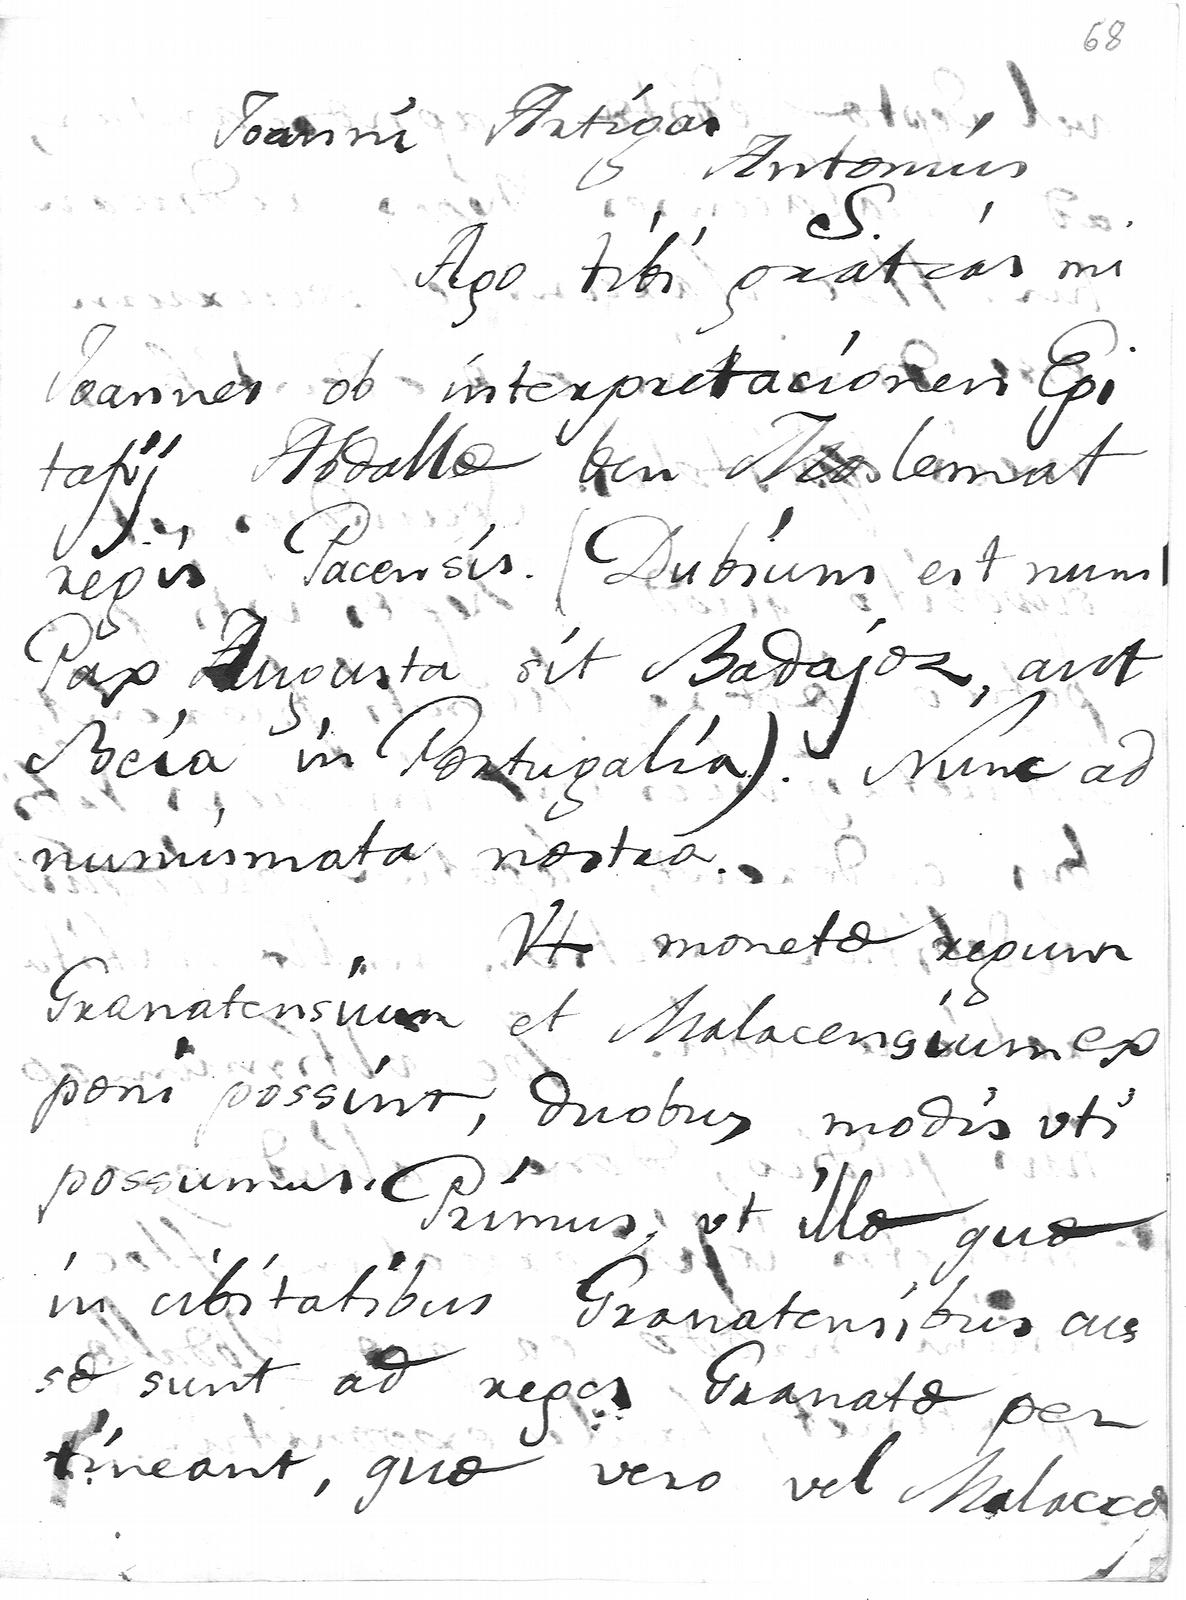 68
Joanni Artigas
Antonius
S.
Ago tibi gratias mi
Joannes ob interpretacionen Epi
tafij Abdallæ ben Moslemat
regis Pacensis. (Dubium est num
Pax Augusta sit Badajoz, aut
Beia in Portugalia). Nunc ad
numismata nostra.
Vt monetæ regum
Granatensium et Malacensium ex
poni possint, duobus modis vti
possumus. Primus, vt illæ quæ
in cibitatibus Granatensibus cus
sæ sunt ad reges Granatæ per
tineant, quæ vero vel Malacæ